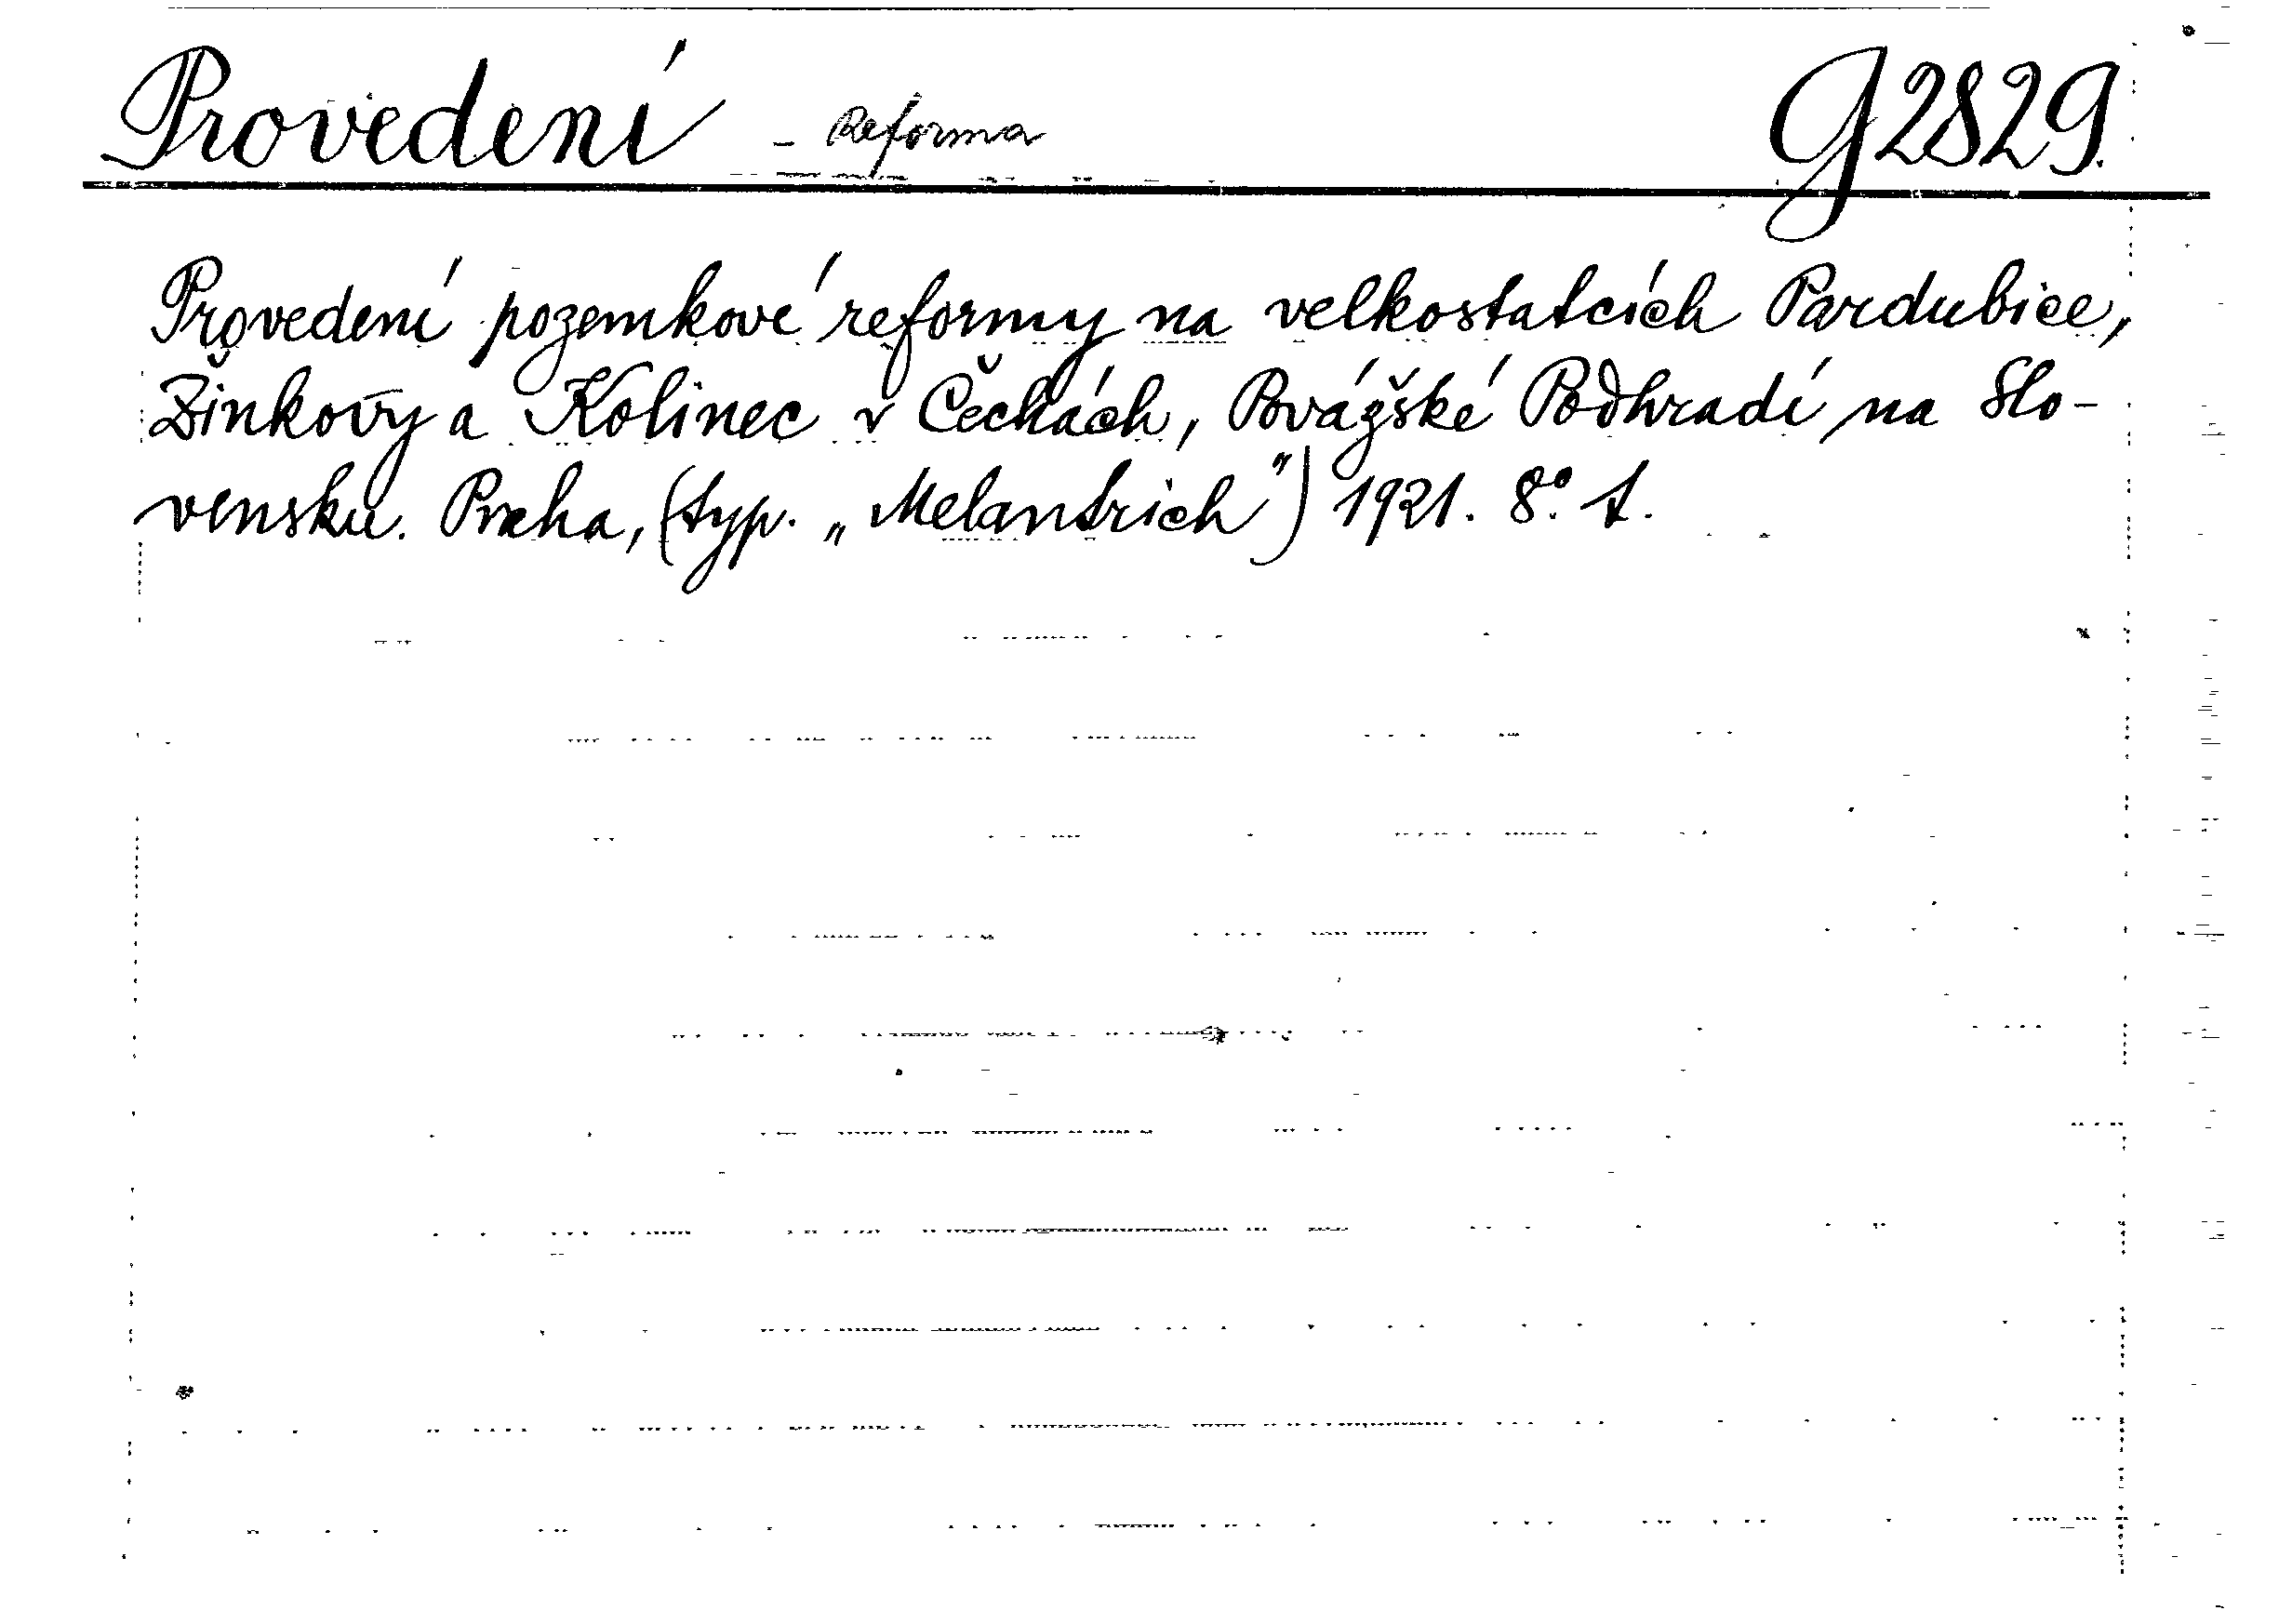 Provedení - Reforma G 2829.
Provedení pozemkové reformy na velkostatcích Pardubice,
Žinkovy a Kolinec v Čechách, Povážské Podhradí na Slo-
vensku. Praha, (typ. „Melantrich") 1921. 8°. 1.